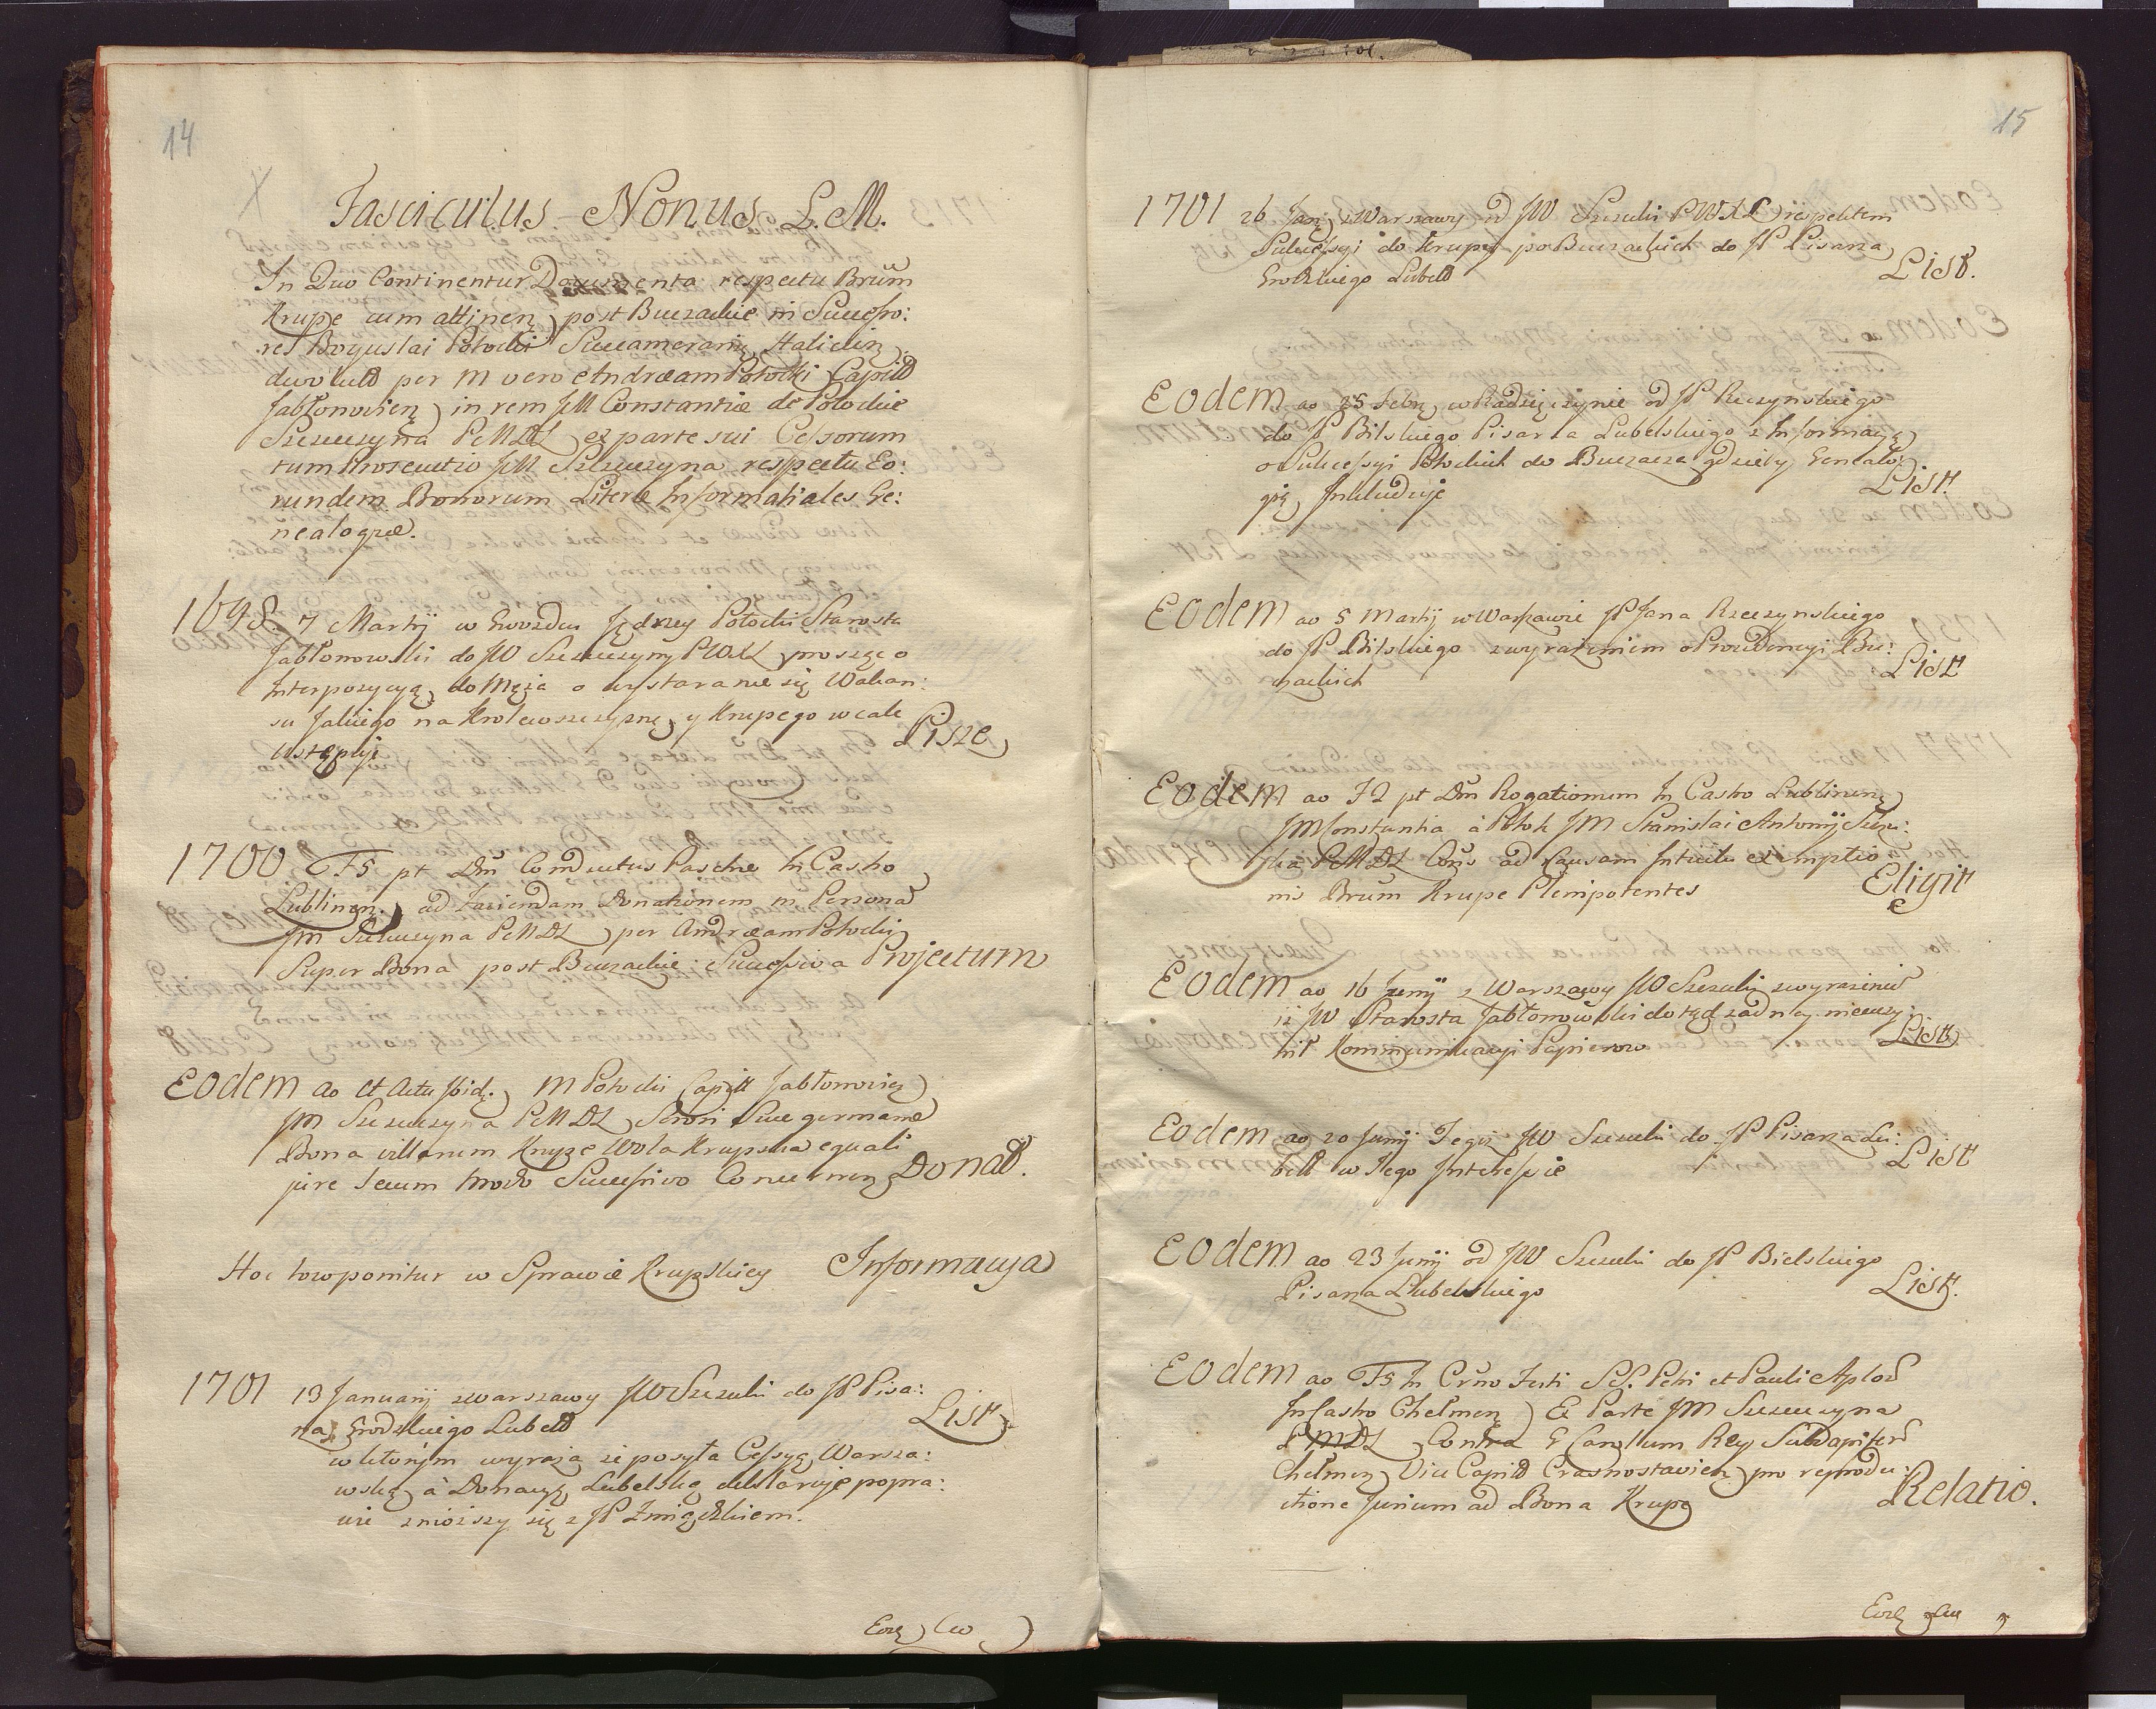 14
Fasciculus Nonus L. M.
In Quo Continentur Documenta respectu Brum
Krupe cum attinen post Buczackie in Successo:
res Boguslai Potocki Succamerarii Halicien
devolut per M vero Andræam Potocki Capitt
Jabłonovien in rem JM Constantiæ de Potockie
Szczuczyna PMDL ex parte sui Cessorum
tum Prosecutio JM Szczuczyna respectu Eo:
rundem Bonorum Literæ Informatiales Ge:
nealogiæ.
1698 7 Martij w Gwozdcu Jędrzey Potocki Starosta
Jabłonowski do JW Szczuczyny PWXL proszęc o
Interpozycyą do Męża o wystaranie się Wakan:
su Jakiego na Krolewszczyznę y Krupego wcale
ustępuje Pisze
1700 F5 pt Dnī Conductus Paschæ In Castro
Lublinen ad Faciendam Donationem in Persona
JM Szczuczyna PMDL per Andræam Potocki
Super Bona post Buczackie Successiva Projectum
Eodem ao et Actu Ibid. M Potocki Capitt Jabłonovien
JM Szczuczyna PMDL Sorori Suæ germanæ
Bona villarum Krupe Wola Krupska equali
jure secum modo Successivo Concernen Donat.
Hoc loco ponitur w Sprawie Krupskiey Informacya
1701 13 Januarij z Warszawy JW Szczuki do JP Pisa:
rza Grodzkiego Lubelt List
w ktorym wyraża że posyła Cessyą Warsza:
wską à Donacyą Lubelską deklaruje popra:
wić zniosszy się z JP Żmigdzkiem.
15
1701 26 Jan z Warszawy od JW Szczuki PWXL respektem
Sukcessyi do Krupy po Buczackich do JP Pisarza
Grodzkiego Lubelt List.
Eodem ao 25 Febr w Radzięczynie od JP Ruczynskiego
do JP Bilskiego Pisarza Lubelskiego z Informacyą
o Sukcessyi Potockich do Buczacza gdzie by Genealo:
gią Inkluduje List
Eodem ao 5 Martij w Warszawie JP Jana Rzeczynskiego
do JP Bilskiego z wyrażeniem o Prozydencyi Bu:
czackich List
Eodem ao F2 pt Dnī Rogationum In Castro Lublinen
JM Constantia à Potok JM Stanislai Antonij Szczu:
ka PMDL Cōns ad Causam Intuitu exemptio:
nis Brum Krupe Plenipotentes Eligit
Eodem ao 16 Junij z Warszawy JW Szczuki z wyrażeniem
iż JW Starosta Jabłonowski dotąd żadney nieuczy:
nił Kommunikacyi Papierow List
Eodem ao 20 Junij Tegoż JW Szczuki do JP Pisarza Lu:
belt w Tego Interessie List
Eodem ao 23 Junij od JW Szczuki do JP Bielskiego
Pisarza Lubelskiego List.
Eodem ao F5 In Crnō Festi SS. Petri et Pauli Aplor
In Castro Chełmen Ex Parte JM Szczuczyna
PMDL Contra G Carolum Rey Subdapifer
Chełmen Vice Capitt Crasnostavien pro reprodu:
ctione Jurium ad Bona Krupe Relatio.